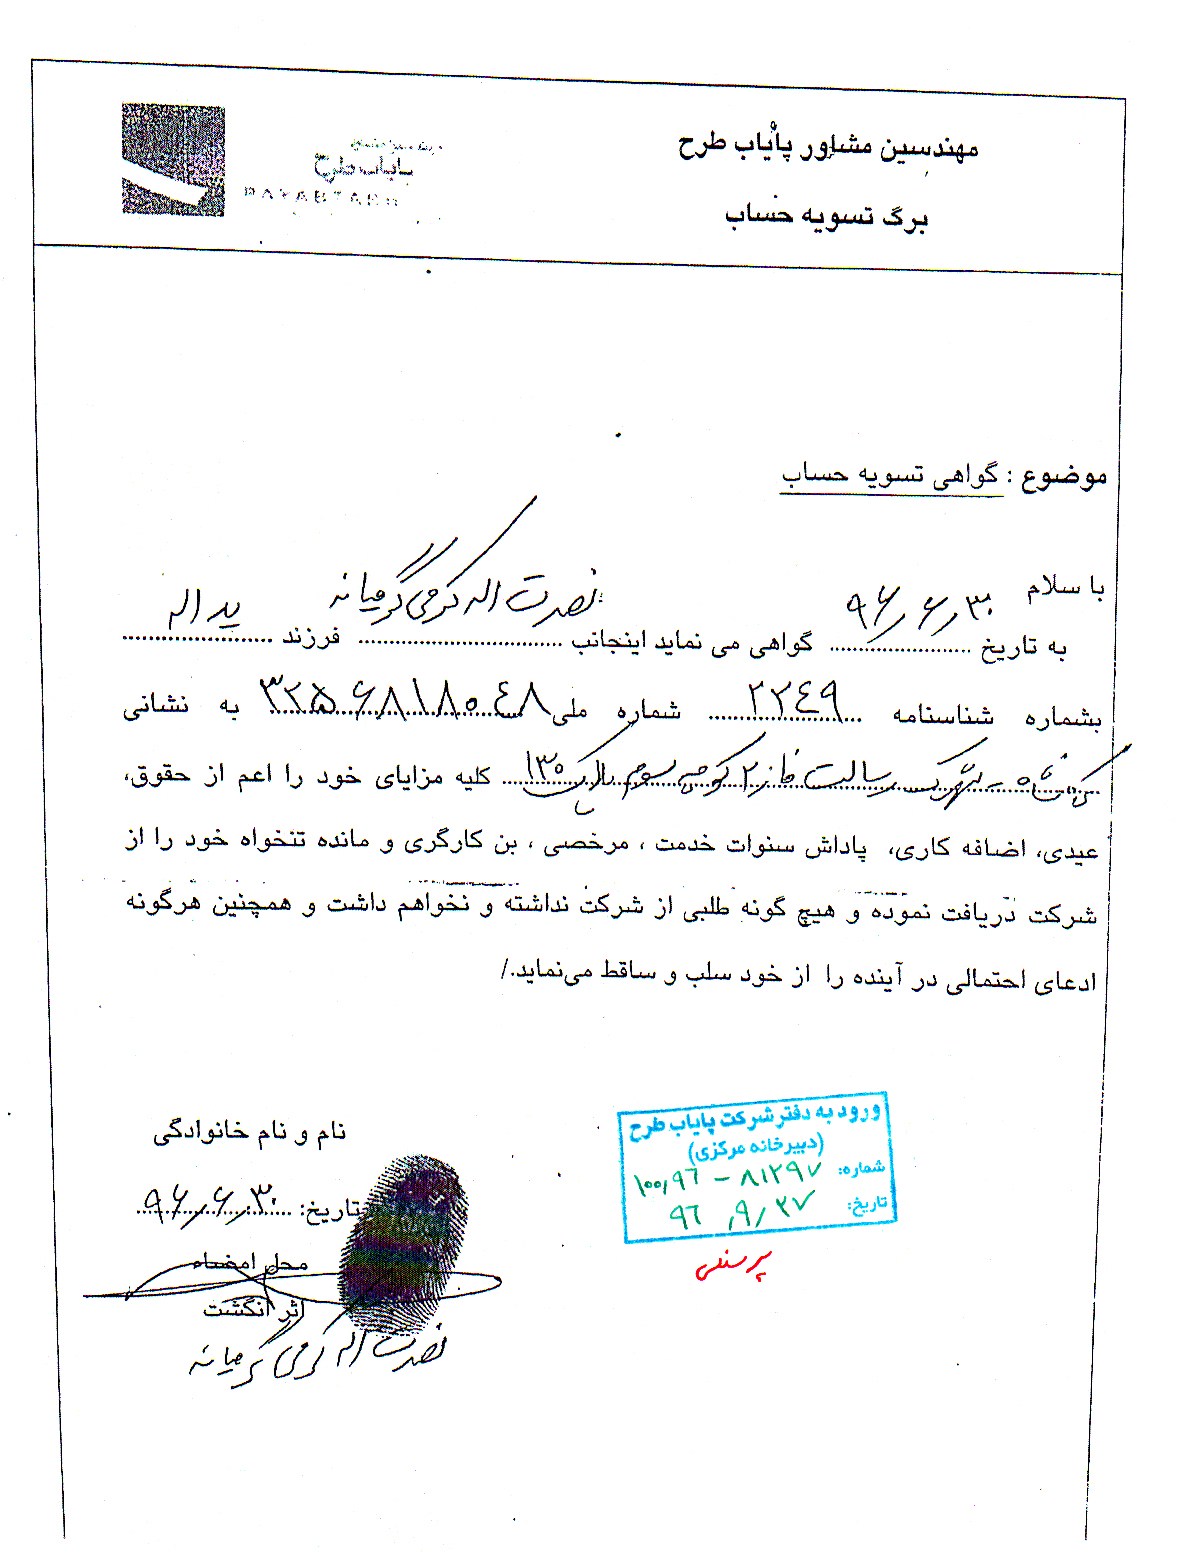 مهندسین مشاور پایاب طرح
برگ تسویه حساب
پایاب طرح
PAYABTARH
موضوع : گواهی تسویه حساب
با سلام
به تاریخ ۹۶٫۶٫۳۰ گواهی می نماید اینجانب نصرت اله کرمی گرمیانه فرزند ید اله
بشماره شناسنامه ۲۲۴۹ شماره ملی ۳۲۵۶۸۱۸۰۴۸ به نشانی
کرمانشاه - شهرک رسالت فاز ۲ کوچه سوم پلاک ۱۳۰ کلیه مزایای خود را اعم از حقوق،
عیدی، اضافه کاری، پاداش سنوات خدمت ، مرخصی ، بن کارگری و مانده تنخواه خود را از
شرکت دریافت نموده و هیچ گونه طلبی از شرکت نداشته و نخواهم داشت و همچنین هرگونه
ادعای احتمالی در آینده را از خود سلب و ساقط می‌نماید./
نام و نام خانوادگی
تاریخ: ۹۶٫۶٫۳۰
محل امضاء
اثر انگشت
نصرت اله کرمی گرمیانه
ورود به دفتر شرکت پایاب طرح
(دبیرخانه مرکزی)
شماره: ۱۰۰٫۹۶ – ۸۱۲۹۷
تاریخ: ۹۶٫۹٫۲۷
پرسنلی